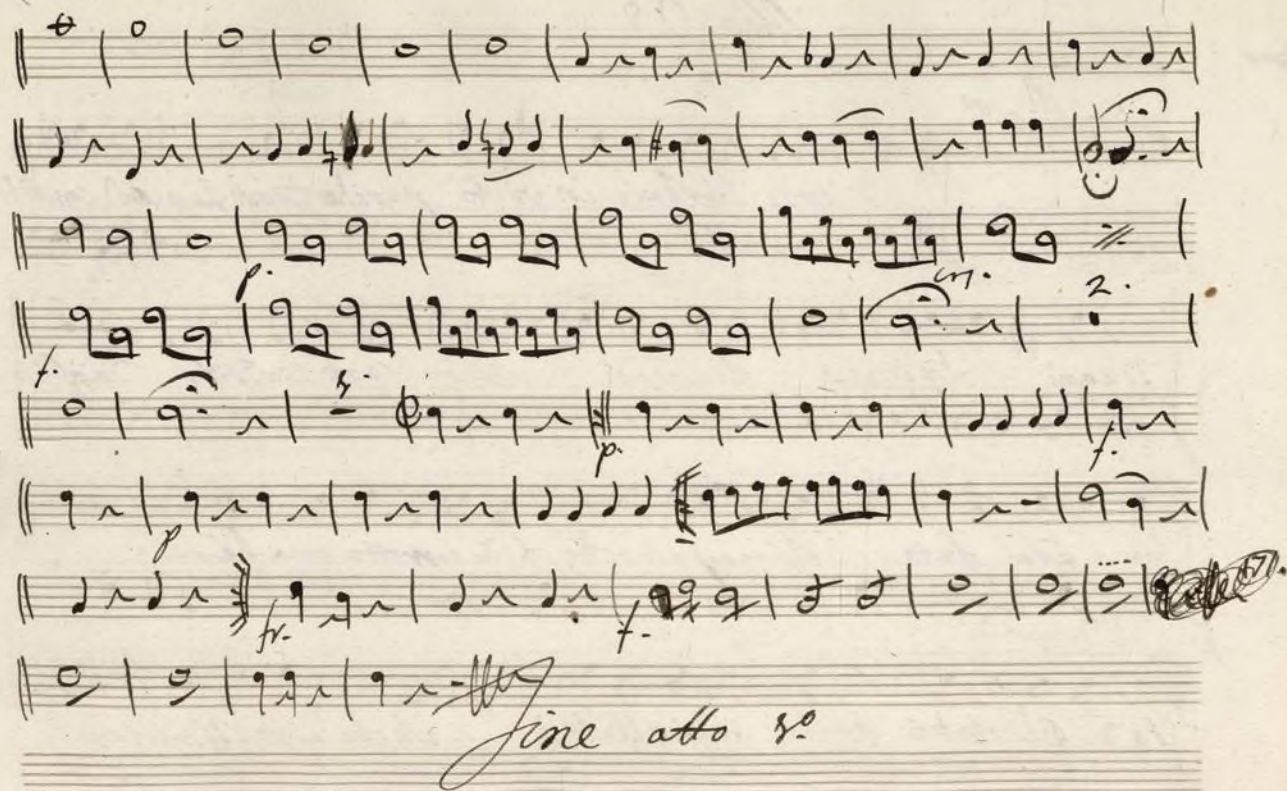 p.
m.
2.
f.
p.
f.
p
fr.
f.
Fine atto 3º